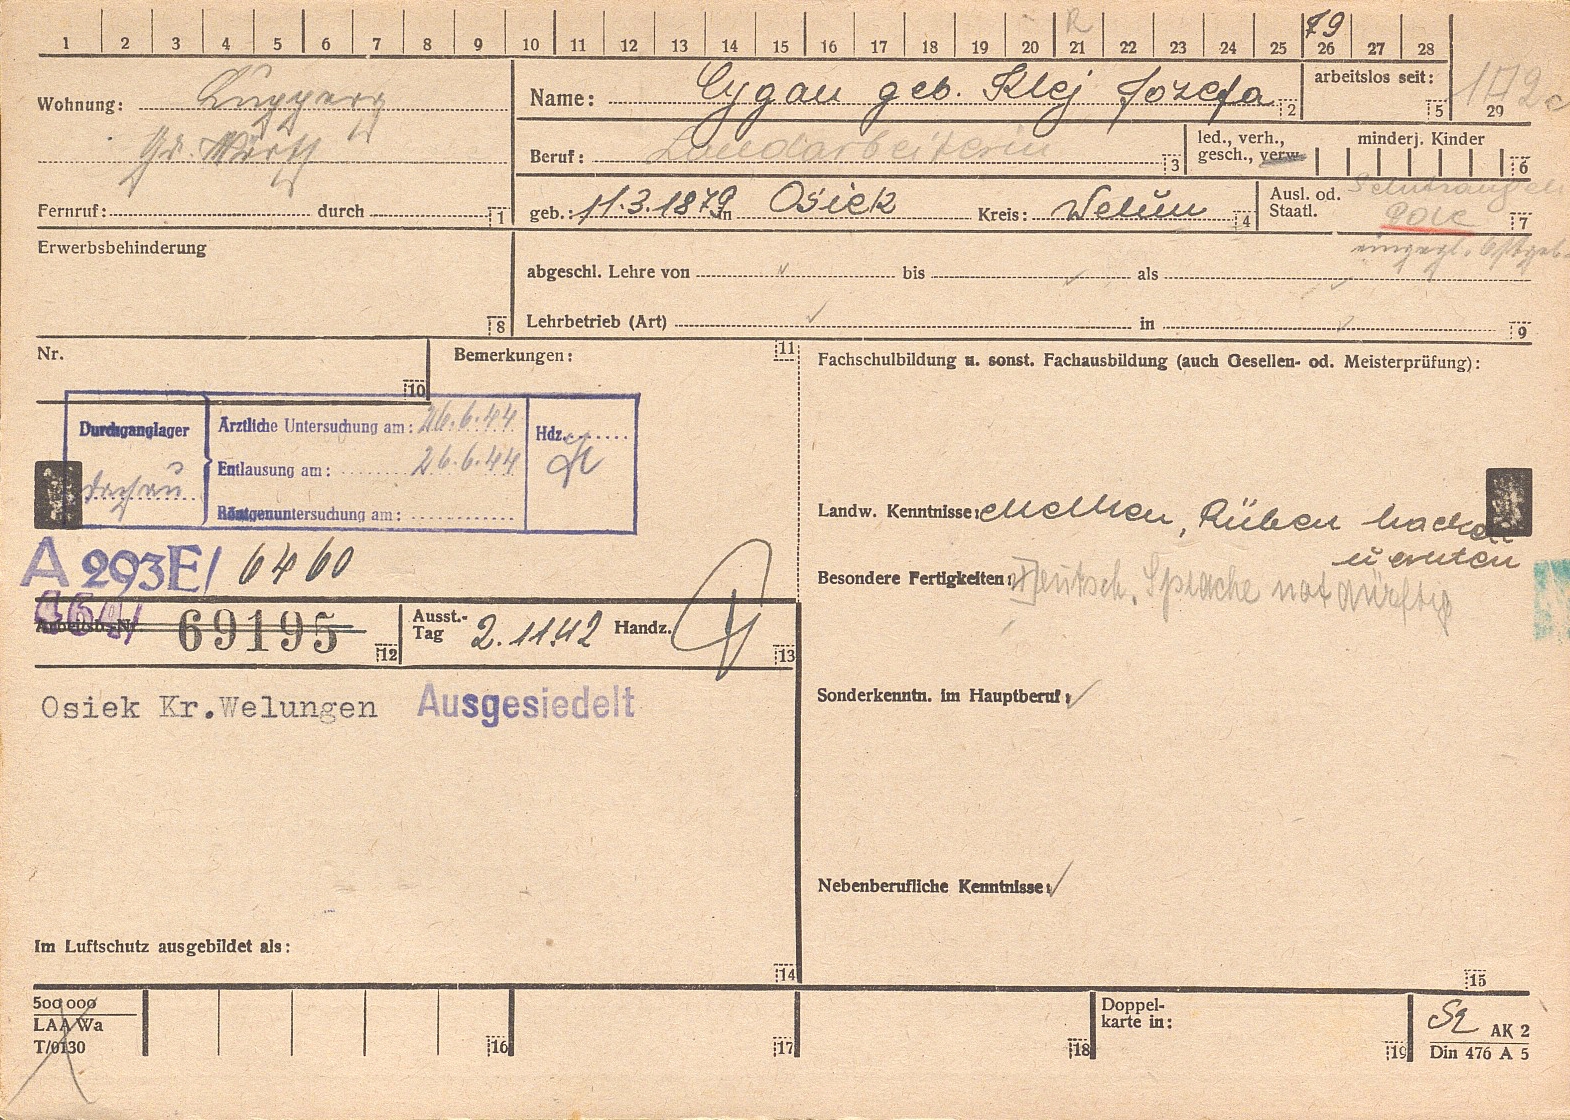 1 2 3 4 5 6 7 8 9 10 11 12 13 14 15 16 17 18 19 20 21 22 23 24 25 26 27 28
R
79
Wohnung:
Gr. Wörth
Fernruf: durch 1
Name: Cygan geb. Klej Jozefa 2
arbeitslos seit: 5
29
Beruf: Landarbeiterin 3
led., verh.,
gesch., verw.
minderj. Kinder 6
geb.: 11.3.1879 in Osiek Kreis: Welun 4
Ausl. od.
Staatl. Schutzangeh.
Pole 7
eingegl. Ostgeb.
Erwerbsbehinderung 8
abgeschl. Lehre von bis als
Lehrbetrieb (Art) in 9
Nr. 10
Bemerkungen: 11
Fachschulbildung u. sonst. Fachausbildung (auch Gesellen- od. Meisterprüfung):
Durchganglager
Dachau
Ärztliche Untersuchung am: 26.6.44
Entlausung am: 26.6.44
Röntgenuntersuchung am:
Hdz.
Landw. Kenntnisse: Melken, Rüben hacken
u ernten
A 293E/ 6460
464/
Besondere Fertigkeiten: Deutsch. Sprache notdürftig
Arbeitsb.-Nr. 69195 12
Ausst.-
Tag 2.11.42 Handz. 13
Osiek Kr.Welungen Ausgesiedelt
Sonderkenntn. im Hauptberuf:
Nebenberufliche Kenntnisse:
Im Luftschutz ausgebildet als:
14
15
500 000
LAA Wa
T/0130
16
17
18
Doppel-
karte in:
19
AK 2
Din 476 A 5